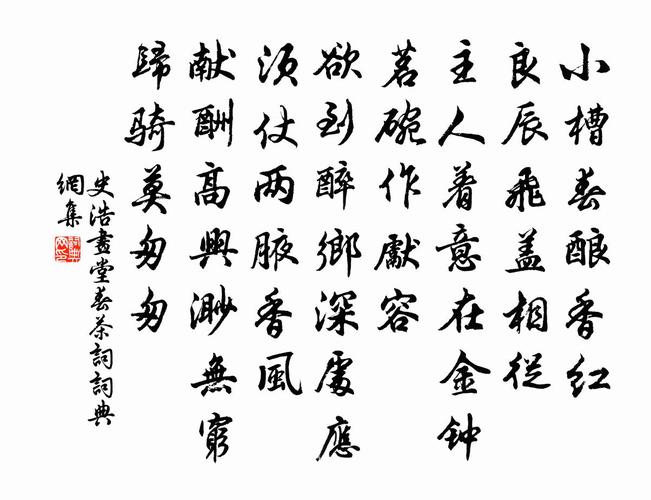 小槽春酿香红
良辰飛盖相從
主人着意在金钟
茗碗作獻容
欲到醉鄉深處應
須仗两腋香風
献酬高興渺無窮
歸骑莫匆匆
史浩畫堂春茶詞詞典
網集